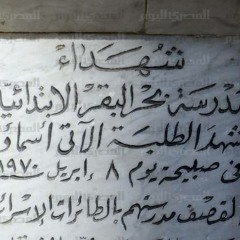 شهداء
مدرسة بحر البقر الابتدائية
شهد الطلبة الآتى اسماؤ
فى صبيحة يوم ٨ ابريل ١٩٧٠
لقصف مدرستهم بالطائرات الاسرا